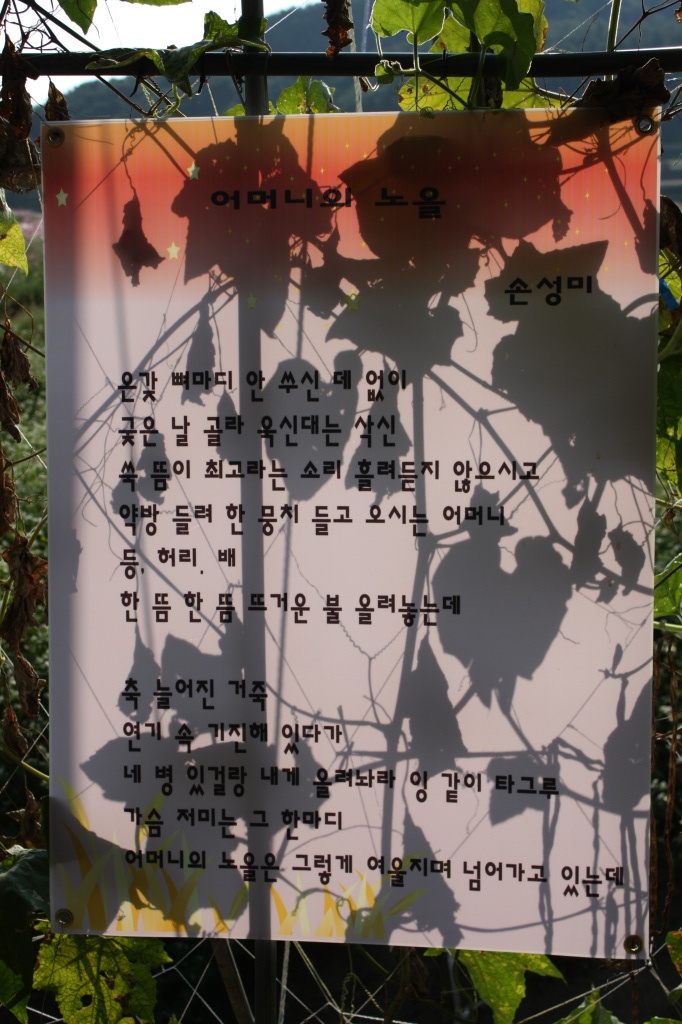 어머니의 노을
손성미
온갖 뼈마디 안 쑤신 데 없이
궂은 날 골라 욱신대는 삭신
쑥 뜸이 최고라는 소리 흘려듣지 않으시고
약방 들려 한 뭉치 들고 오시는 어머니
등, 허리, 배
한 뜸 한 뜸 뜨거운 불 올려놓는데
축 늘어진 거죽
연기 속 기진해 있다가
네 병 있걸랑 내게 올려놔라 잉 같이 타그루
가슴 저미는 그 한마디
어머니의 노을은 그렇게 여울지며 넘어가고 있는데